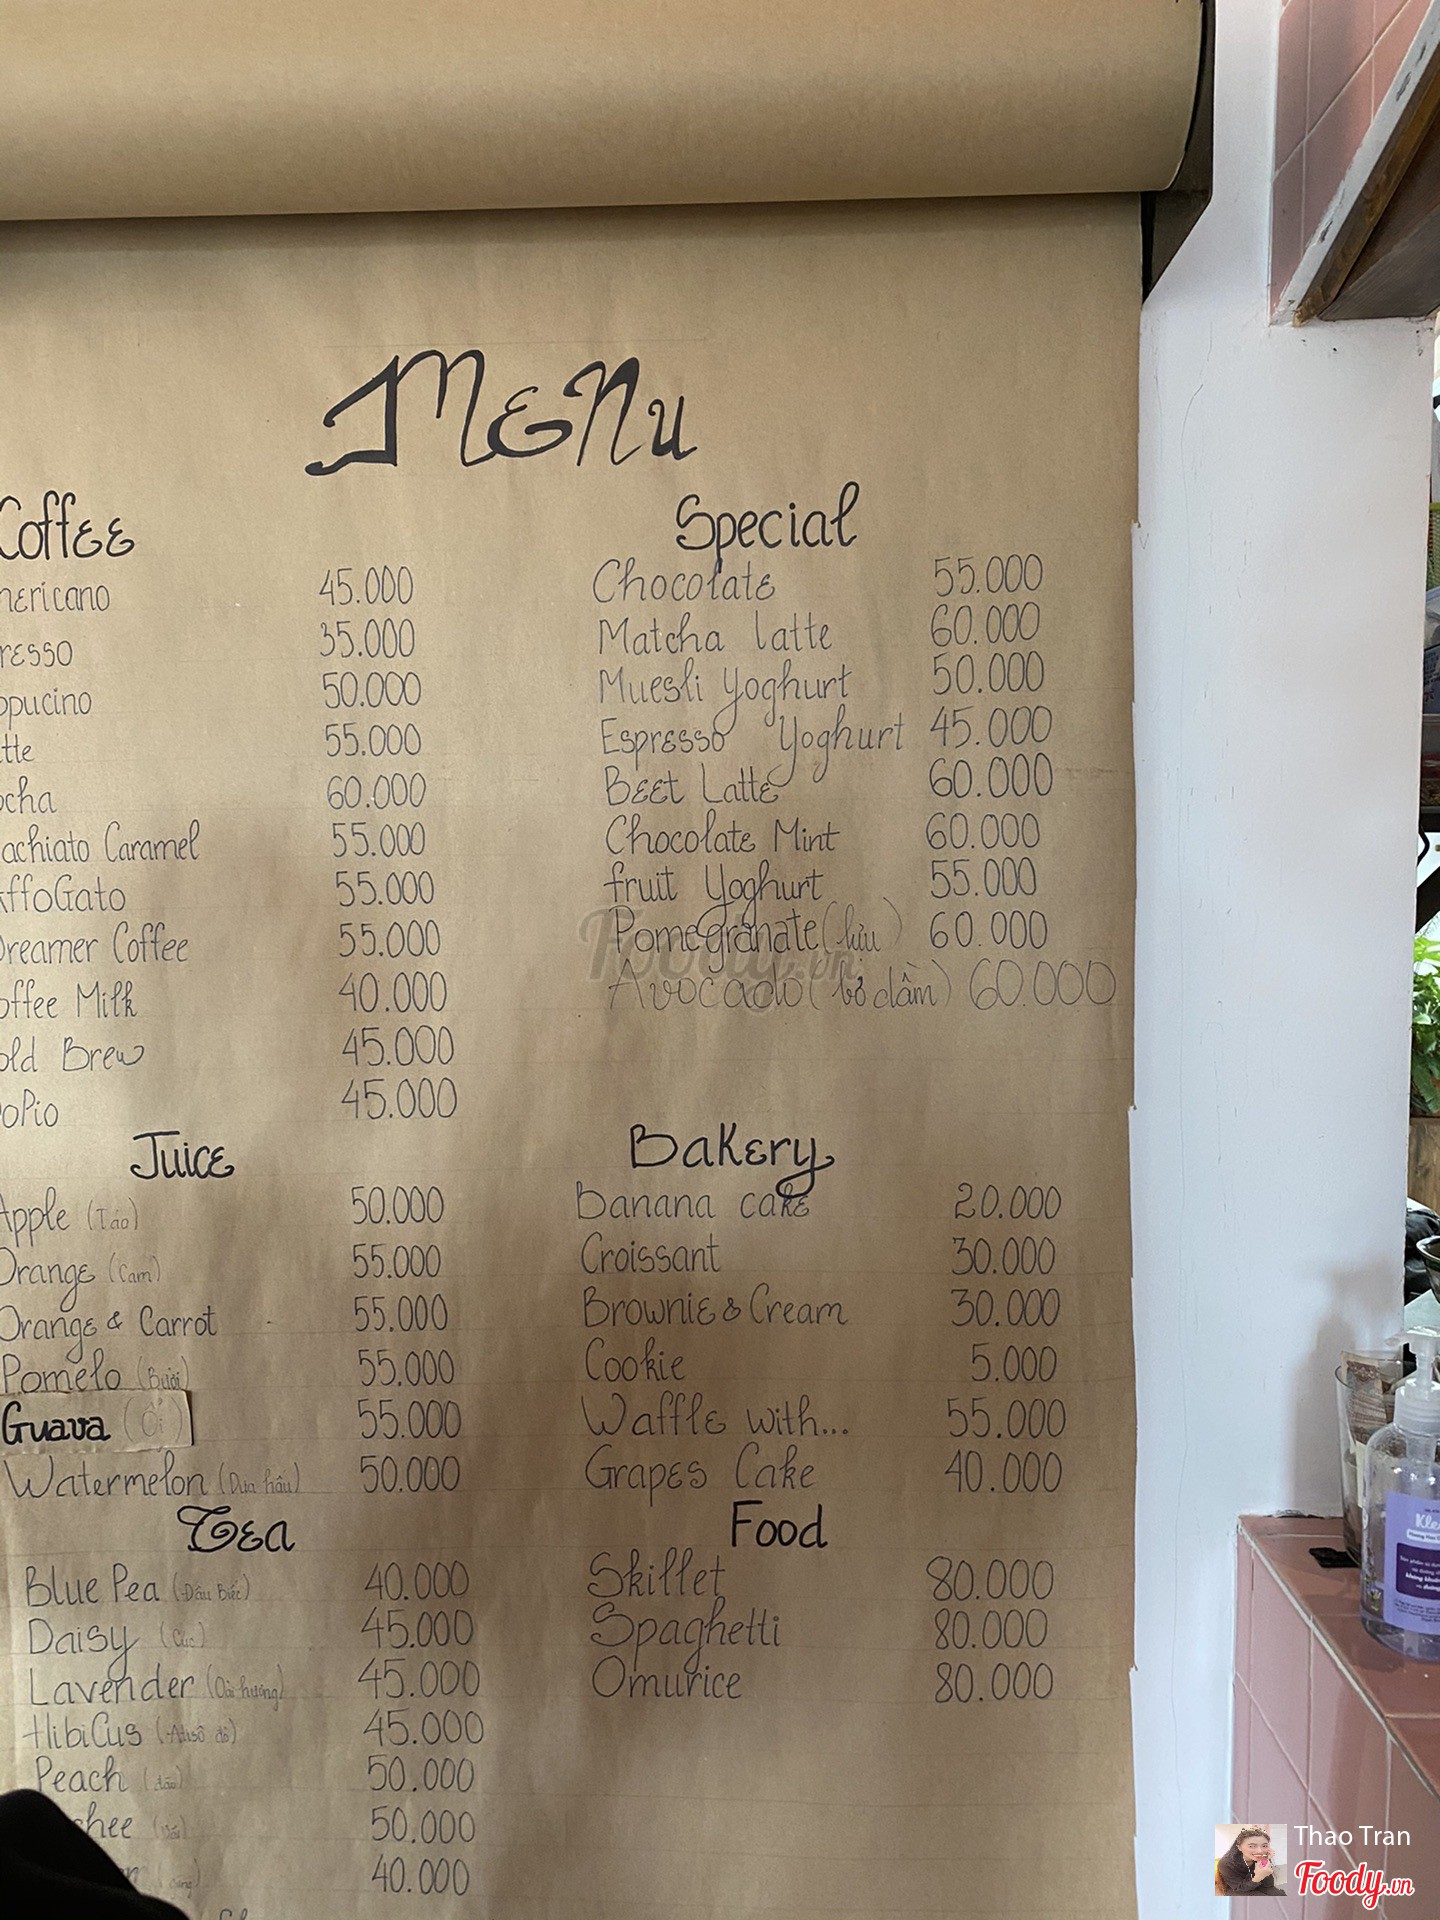 Menu
Coffee
mericano 45.000
resso 35.000
ppucino 50.000
tte 55.000
ocha 60.000
achiato Caramel 55.000
AffoGato 55.000
Dreamer Coffee 55.000
offee Milk 40.000
old Brew 45.000
oPio 45.000
Juice
Apple (Táo) 50.000
Orange (Cam) 55.000
Orange & Carrot 55.000
Pomelo (Bưởi) 55.000
Guava (Ổi) 55.000
Watermelon (Dưa hấu) 50.000
Tea
Blue Pea (Đậu Biếc) 40.000
Daisy (Cúc) 45.000
Lavender (Oải hương) 45.000
HibiCus (Atisô đỏ) 45.000
Peach (đào) 50.000
chee 50.000
40.000
Special
Chocolate 55.000
Matcha latte 60.000
Muesli Yoghurt 50.000
Espresso Yoghurt 45.000
Beet Latte 60.000
Chocolate Mint 60.000
fruit Yoghurt 55.000
Pomegranate (lựu) 60.000
Avocado (bơ dầm) 60.000
Foody.vn
Bakery
Banana cake 20.000
Croissant 30.000
Brownie & Cream 30.000
Cookie 5.000
Waffle with... 55.000
Grapes Cake 40.000
Food
Skillet 80.000
Spaghetti 80.000
Omurice 80.000
Kle
Thao Tran
Foody.vn